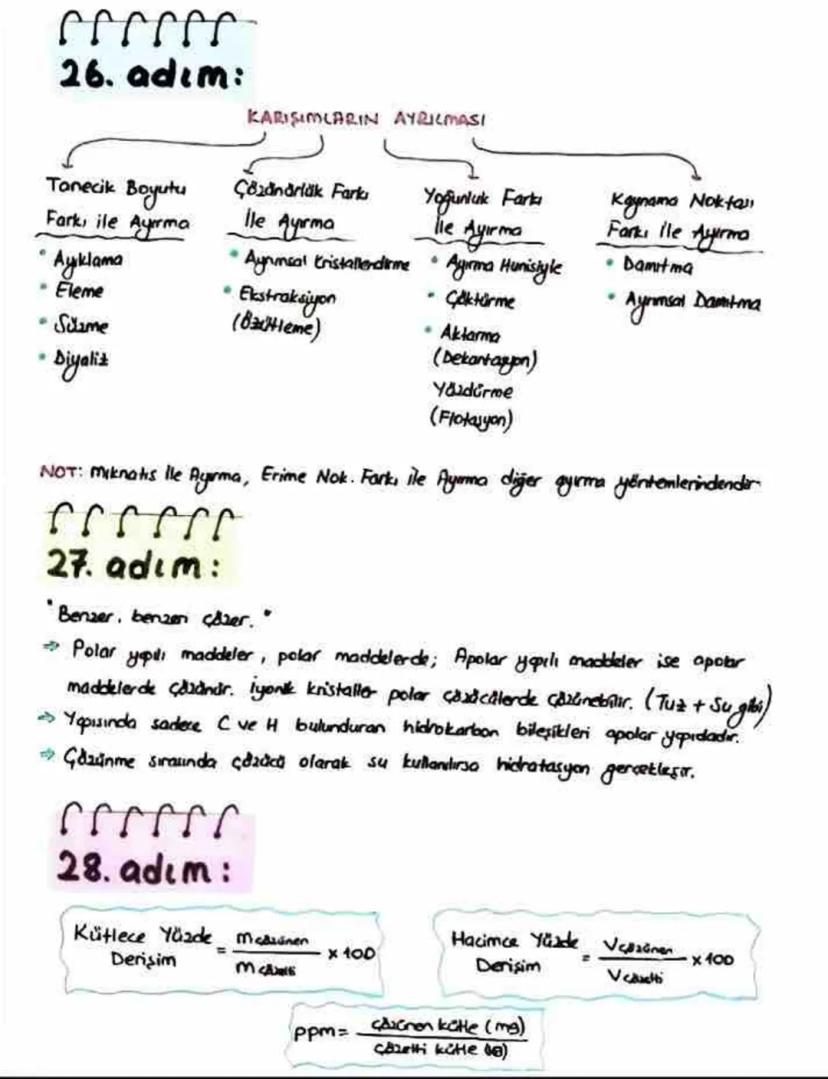 26. adım:
KARIŞIMLARIN AYRILMASI
Tanecik Boyutu
Farkı ile Ayırma
• Ayıklama
• Eleme
• Süzme
• Diyaliz
Çözünürlük Farkı
İle Ayırma
• Ayrımsal Kristallendirme
• Ekstraksiyon
(Özütleme)
Yoğunluk Farkı
İle Ayırma
• Ayırma Hunisiyle
• Çöktürme
• Aktarma
(Dekantasyon)
Yüzdürme
(Flotasyon)
Kaynama Noktası
Farkı İle Ayırma
• Damıtma
• Ayrımsal Damıtma
NOT: Mıknatıs İle Ayırma, Erime Nok. Farkı ile Ayırma diğer ayırma yöntemlerindendir
27. adım:
"Benzer, benzeri çözer."
⇒ Polar yapılı maddeler, polar maddelerde; Apolar yapılı maddeler ise apolar
maddelerde çözünür. İyonik kristaller polar çözücülerde çözünebilir. (Tuz + Su gibi)
⇒ Yapısında sadece C ve H bulunduran hidrokarbon bileşikleri apolar yapıdadır.
⇒ Çözünme sırasında çözücü olarak su kullanılırsa hidratasyon gerçekleşir.
28. adım:
Kütlece Yüzde Derişim = m çözünen / m çözelti x 100
Hacimce Yüzde Derişim = V çözünen / V çözelti x 100
ppm = çözünen kütle (mg) / çözelti kütle (kg)